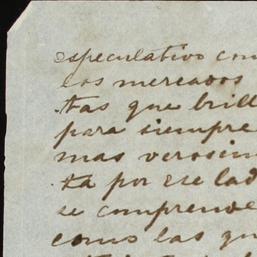 especulativo con
los mercados
tas que brill
para siempre
mas verosim
ta por ese lad
se comprende
como las qu